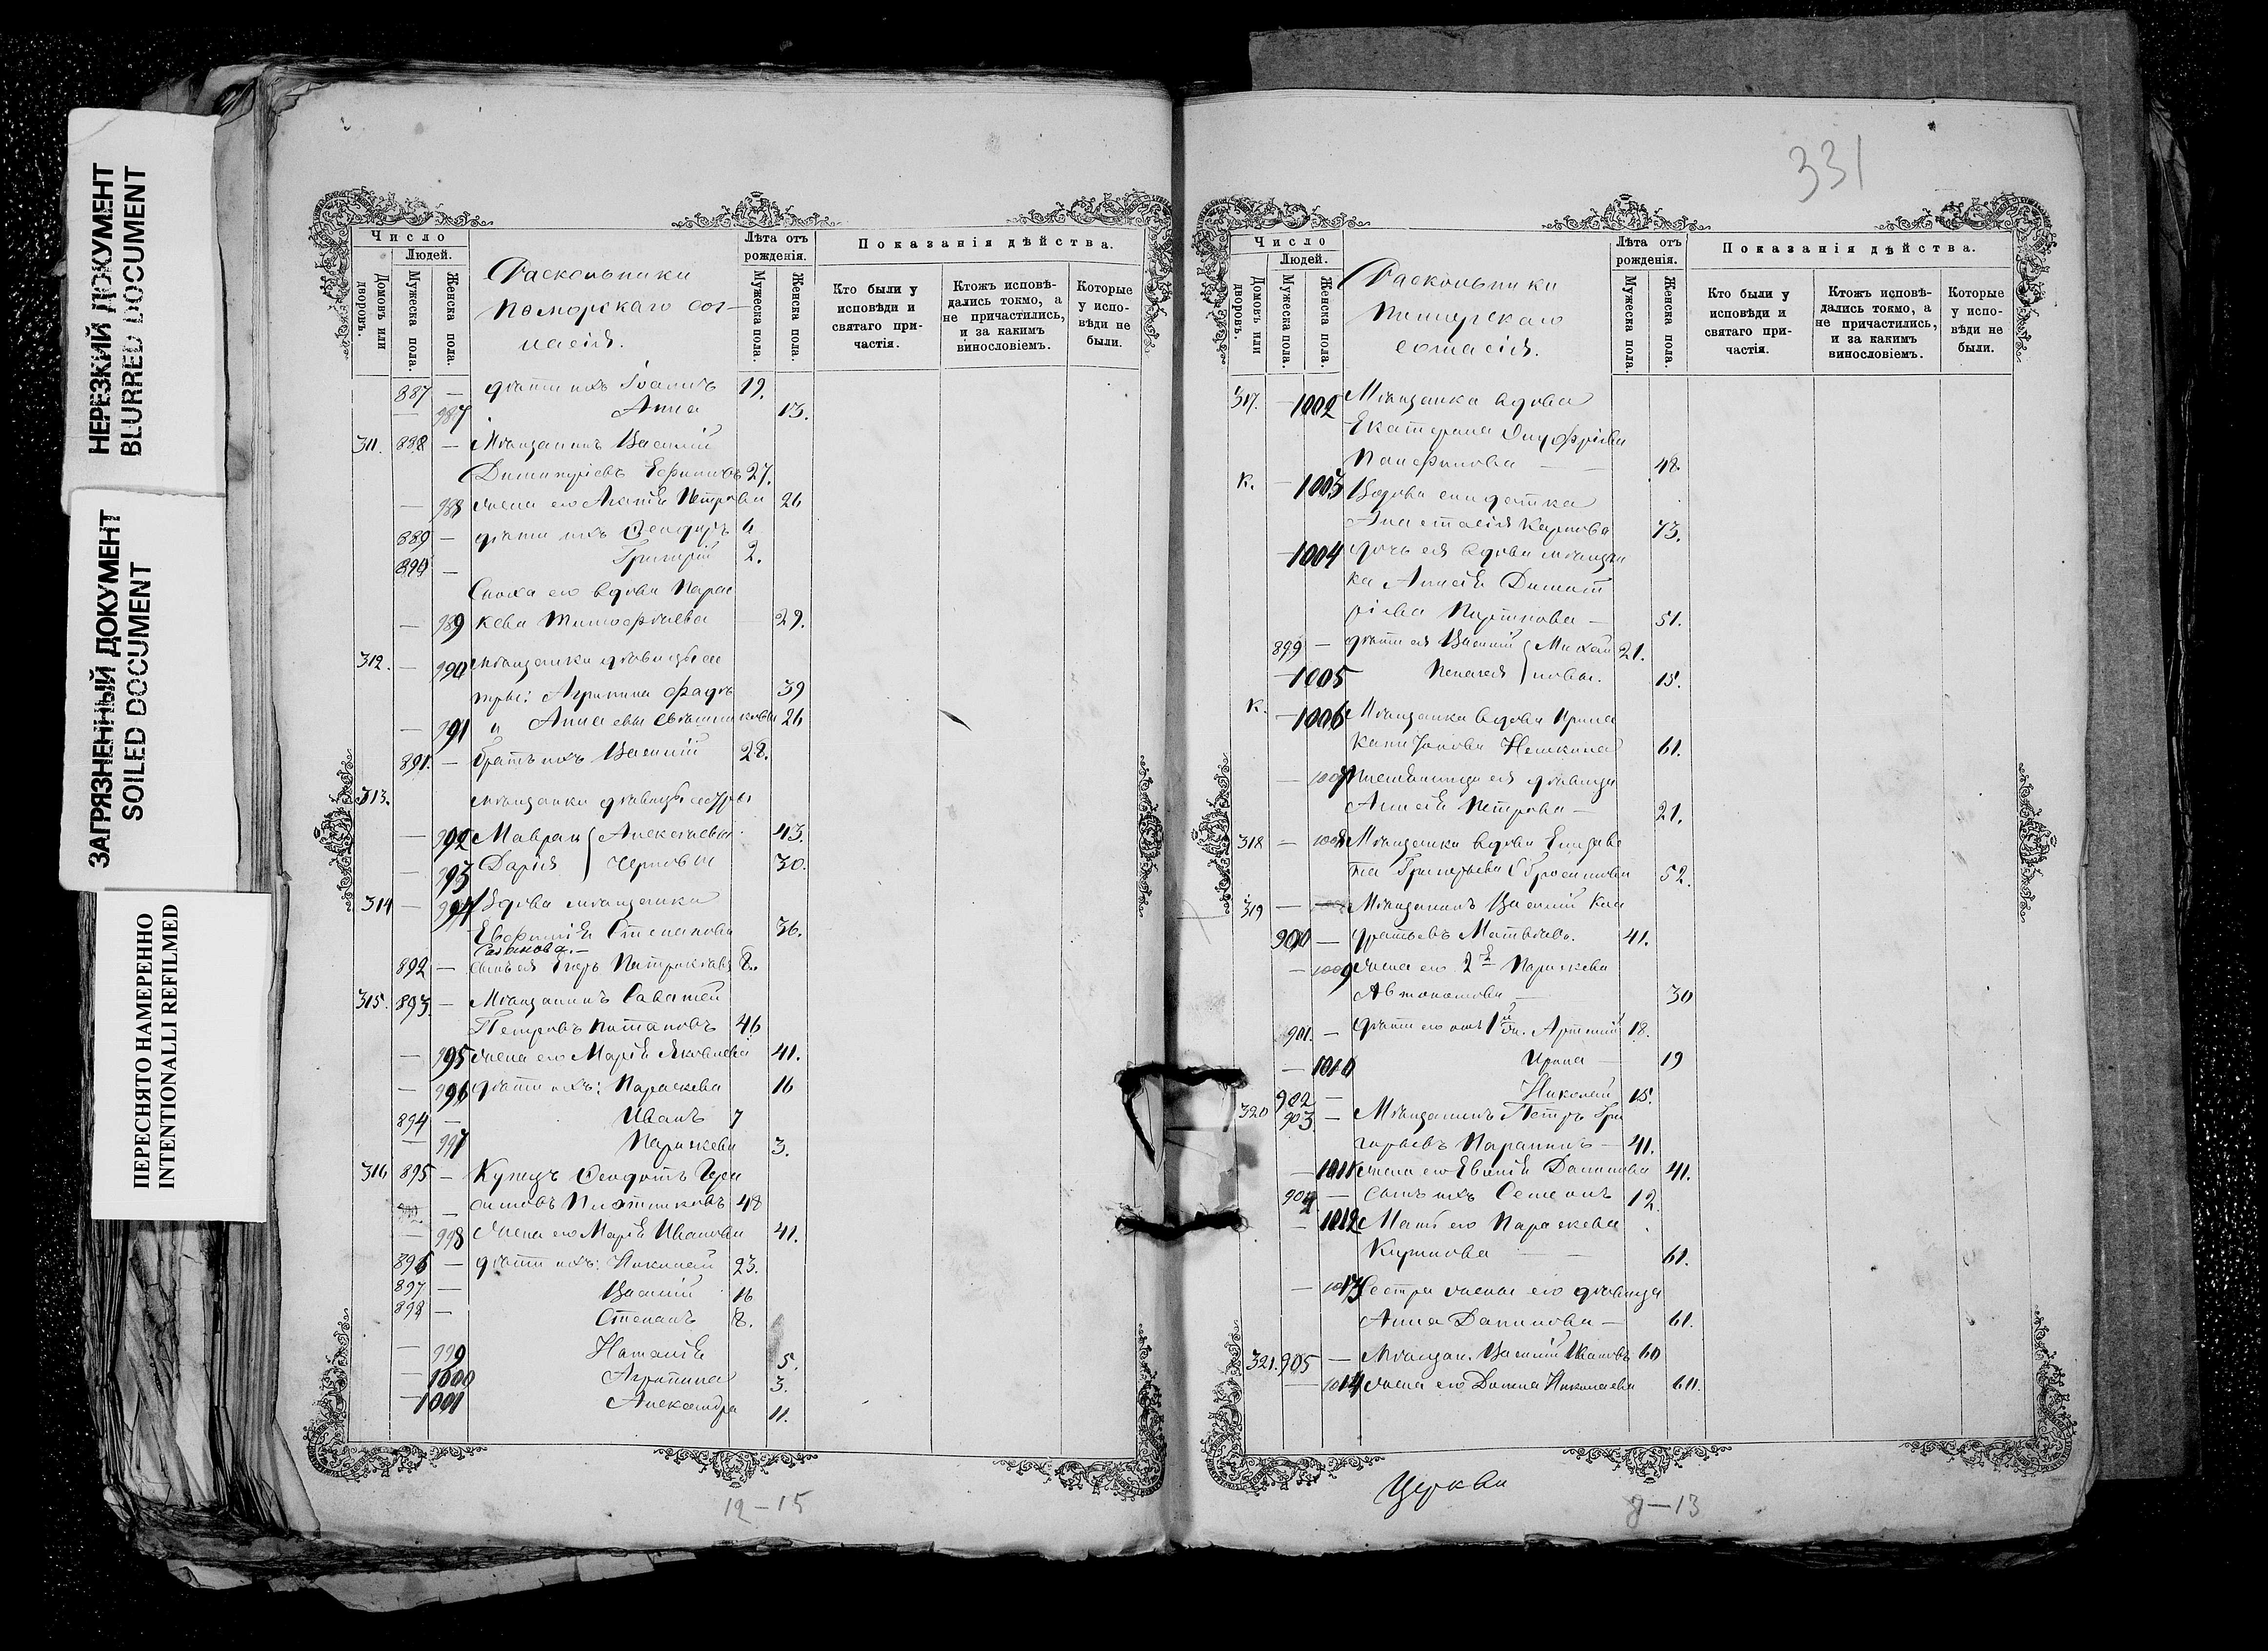 НЕРЕЗКИЙ ДОКУМЕНТ
BLURRED DOCUMENT
ЗАГРЯЗНЕННЫЙ ДОКУМЕНТ
SOILED DOCUMENT
ПЕРЕСНЯТО НАМЕРЕННО
INTENTIONALLI REFILMED
Число
Людей.
Домовъ или дворовъ.
Мужеска пола.
Женска пола.
Раскольники
поморскаго сог-
ласія.
Лѣта отъ рожденія.
Мужеска пола.
Женска пола.
Показанія дѣйства.
Кто были у исповѣди и святаго при-частія.
Ктожъ исповѣ-дались токмо, а не причастились, и за какимъ винословіемъ.
Которые у испо-вѣди не были.
887 — дѣти ихъ Іоаннъ 19.
— 987 Анна 13.
311. 888 — Мѣщанинъ Василій
Димитріевъ Ефимовъ 27.
— 988 жена его Агатія Петрова 26
889 — дѣти ихъ Ѳеодоръ 6
890 — Григорій 2.
Сноха его вдова Парас
— 989 кева Тимофѣева 29.
312. — 990 мѣщанки дѣвицы сес
тры: Агрипина 39
— 991 " Анна 26
891. — братъ ихъ Василій 28.
313. мѣщанки дѣвицы сестры
— 992 Мавра Алексѣевы 43.
— 993 Дарія Черновы 30.
314 — 994 Вдова мѣщанка
Евфимія Степанова 36.
892 — сынъ ея 8.
315. 893 — Мѣщанинъ Саватей
Петровъ Потаповъ 46
— 995 жена его Марія Яковлева 41.
— 996 дѣти ихъ: Параскева 16
894 — Иванъ 7
— 997 Параскева 3.
316 895 — Купецъ Ѳеодотъ Гера
симовъ Плотниковъ 48
— 998 жена его Марія Иванова 41.
896 — дѣти ихъ: Николай 23.
897 — Василій 16
898 — Степанъ 8.
— 999 Наталія 5.
— 1000 Агрипина 3.
— 1001 Александра 11.
12—15
331
Число
Людей.
Домовъ или дворовъ.
Мужеска пола.
Женска пола.
Раскольники
поморскаго
согласія.
Лѣта отъ рожденія.
Мужеска пола.
Женска пола.
Показанія дѣйства.
Кто были у исповѣди и святаго при-частія.
Ктожъ исповѣ-дались токмо, а не причастились, и за какимъ винословіемъ.
Которые у испо-вѣди не были.
317. — 1002 Мѣщанка вдова
Екатерина Онуфріева
Панфилова — 48.
к. — 1003 Вдова солдатка
Анастасія Карпова 73.
— 1004 дочь ея вдова мѣщан
ка Анисія Димит
ріева — 51.
899 — дѣти ея Василій Михай 21.
— 1005 Пелагея ловы. 15.
к. — 1006 Мѣщанка вдова Ирина
61.
— 1007 ея дѣвица
Анисія Петрова — 21.
318 — 1008 Мѣщанка вдова Елизаве
та Григорьева 52.
319 — Мѣщанинъ Василій Кон
900 — дратьевъ Матвѣевъ. 41.
— 1009 жена его 2я Параскева
Автономова — 30
901. — дѣти его отъ 1й ж. Артемій 18.
— 1010 Ирина — 19
902 — Николай 15.
320 903 — Мѣщанинъ Петръ Гри
горьевъ — 41.
— 1011 жена его Евгенія Данилова 41.
904 — сынъ ихъ Семенъ 12
— 1012 Мать его Параскева
61.
— 1013 Сестра жены его дѣвица
Анна Данилова — 61.
321. 905 — Мѣщан. Василій Ивановъ 60
— 1014 жена его Домна Николаева 60.
Церкви
8—13